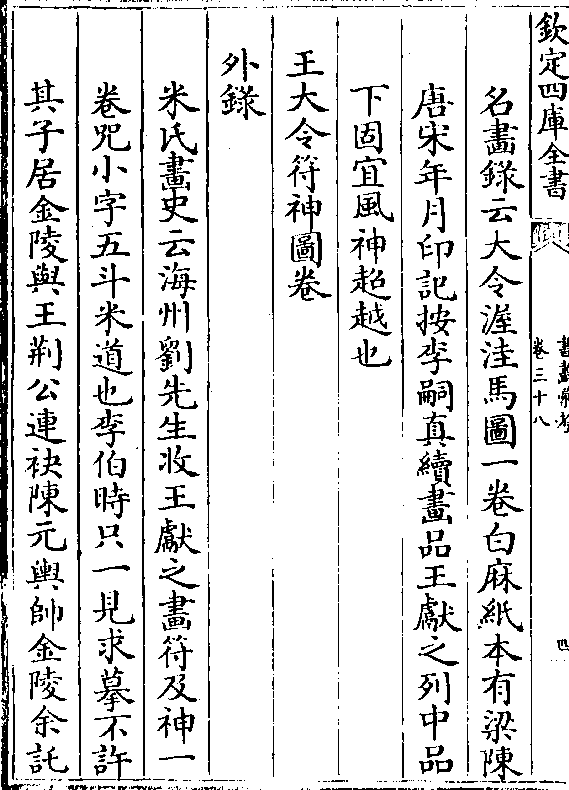 欽定四庫全書
書畫彙考
卷三十八
四
名畫錄云大令渥洼馬圖一卷白麻紙本有梁陳
唐宋年月印記按李嗣真續畫品王獻之列中品
下固宜風神超越也
王大令符神圖卷
外錄
米氏畫史云海州劉先生收王獻之畫符及神一
卷咒小字五斗米道也李伯時只一見求摹不許
其子居金陵與王荆公連袂陳元輿帥金陵余託